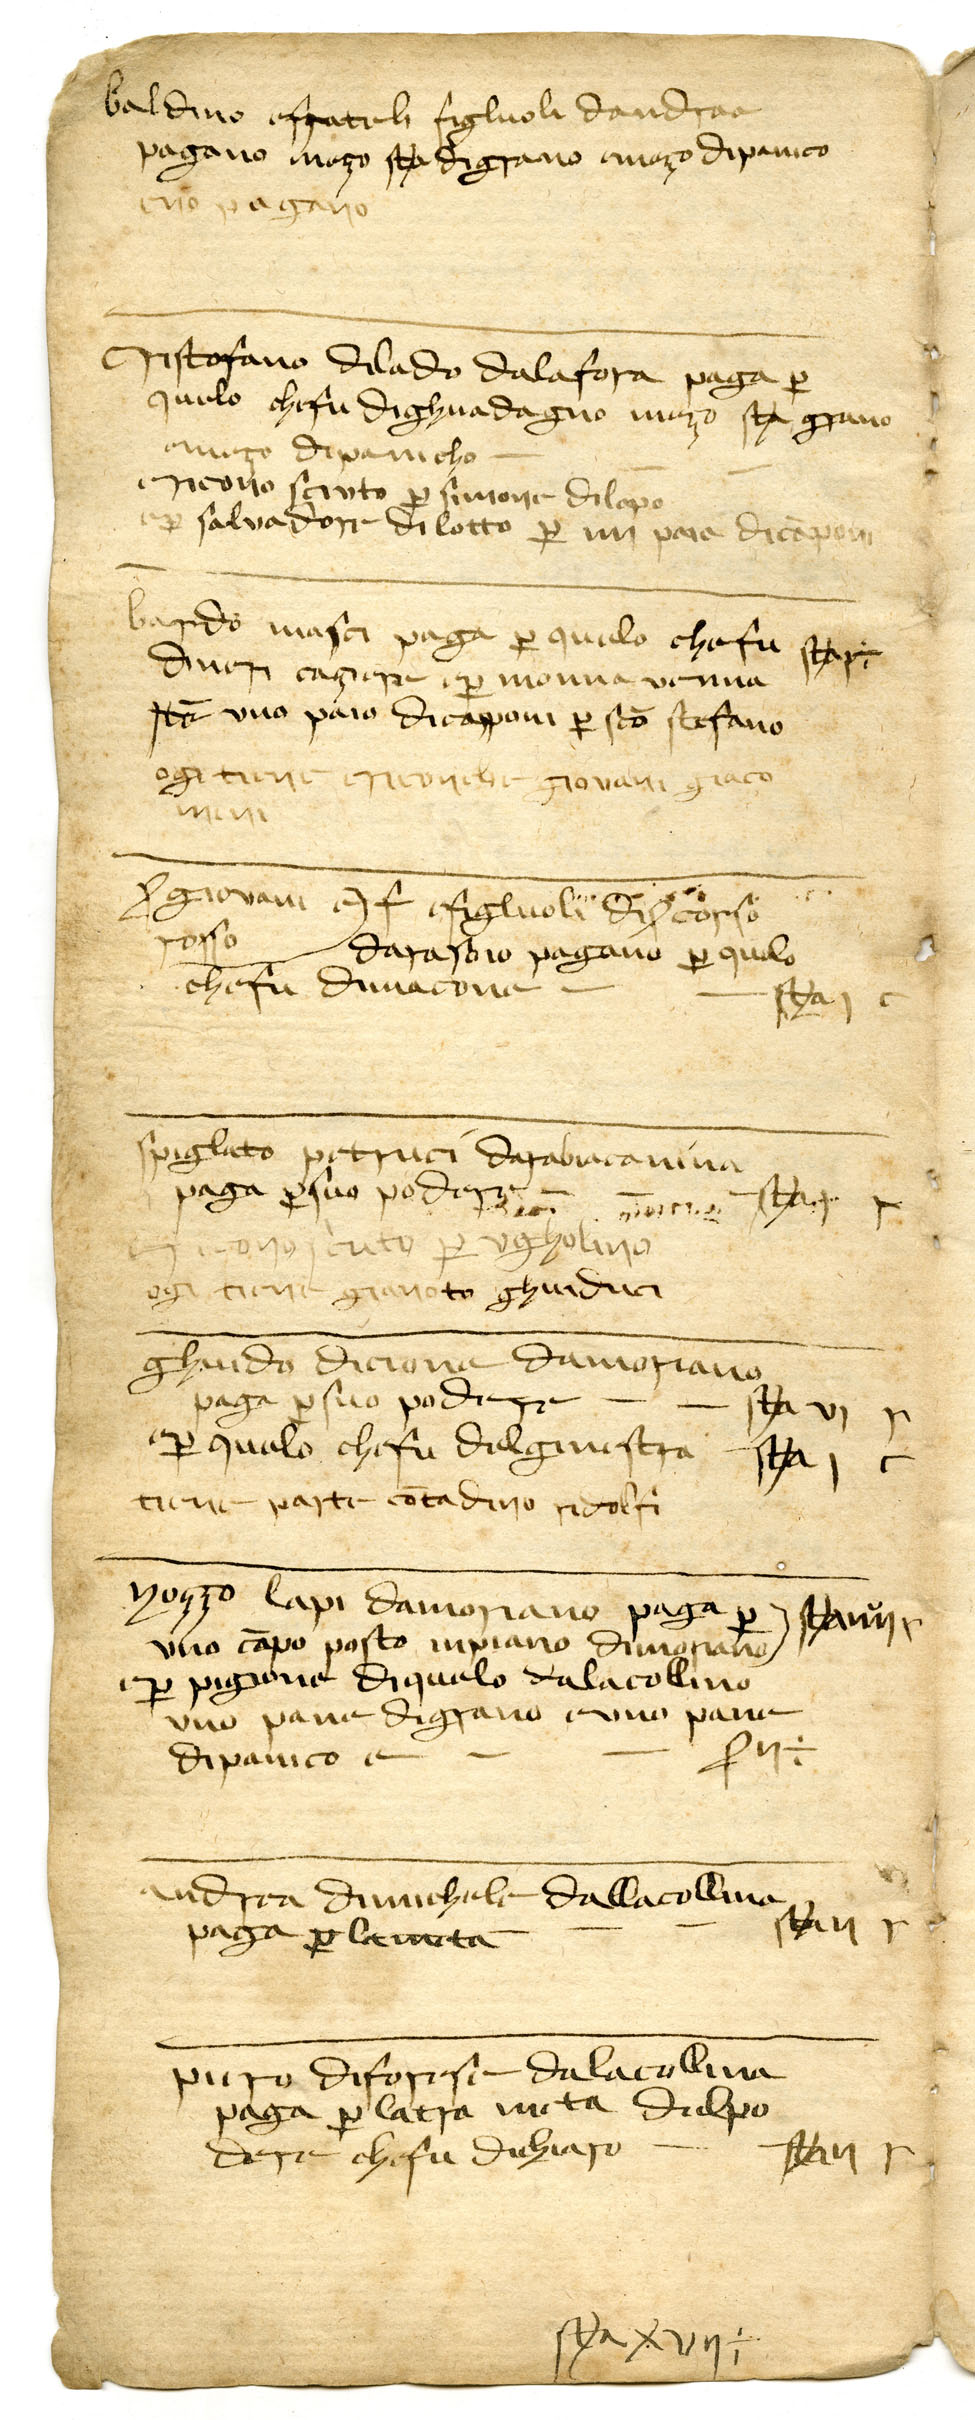 baldino efrateli figluoli dandrea
pagano mezo sta digrano emezo dipanico
eno pagano
Cristofano dilado dalafora paga p
quelo chefu dighuadagno mezo sta grano
emezo dipanicho
ericono sciuto p simone dilapo
ep salvadore dilotto p un paia dicaponi
bardo masci paga p quelo chefu
dineri cazere ep monna venna
sta uno paio dicaponi p sco stefano
ogi tiene giovani giaco
mini
giovani figluoli di corso
rosso pagano p quelo
chefu dinacone sta j
spiglato petruci
paga p suo podere sta r
p ugholino
ogi tiene gianoto ghuiduci
ghuido dicione damoriano
paga p suo podere sta vj r
ep quelo chefu delginestra sta j
tiene parte cotadino ridolfi
nozzo lapi damoriano paga p
uno capo posto inpiano dimoriano
ep pigione diquelo dalacollino
uno pane digrano euno pane
dipanico e
andrea dimichele dallacollina
paga p lameta sta ii r
piero diforese dalacollina
paga p latra meta delpo
dere chefu dichiaro sta ii r
sta xvii